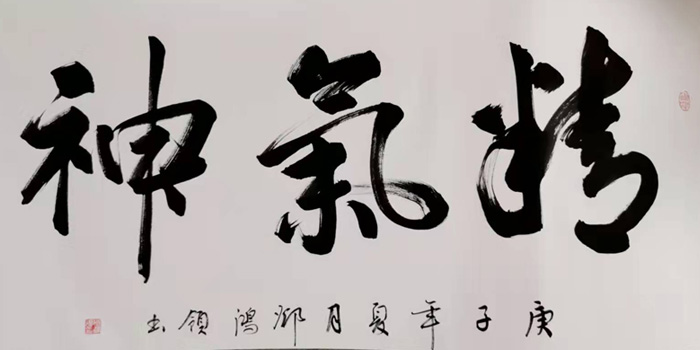 精氣神
庚子年夏月鄧鴻領书